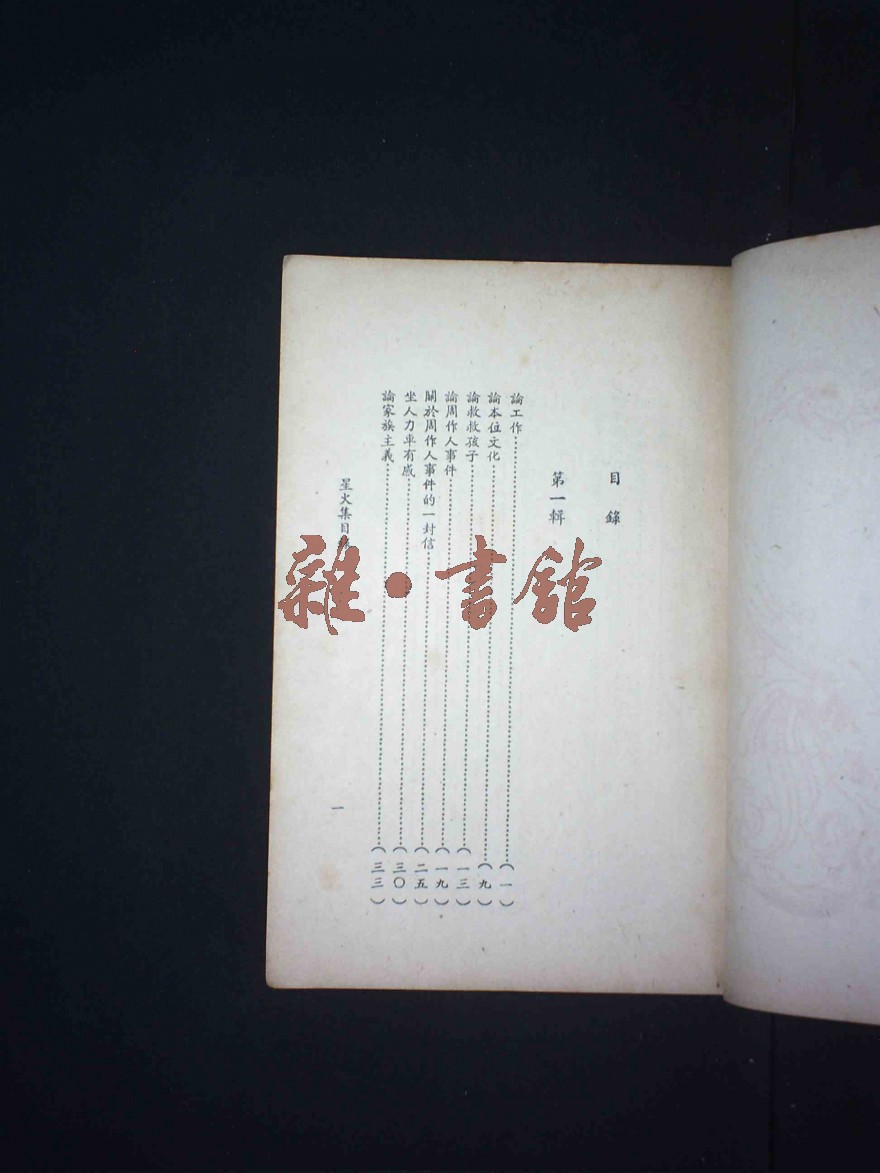 目錄
第一輯
論工作……(一)
論本位文化……(九)
論救救孩子……(一三)
論周作人事件……(一九)
關於周作人事件的一封信……(二五)
坐人力車有感……(三〇)
論家族主義……(三三)
星火集目
一
雜·書館